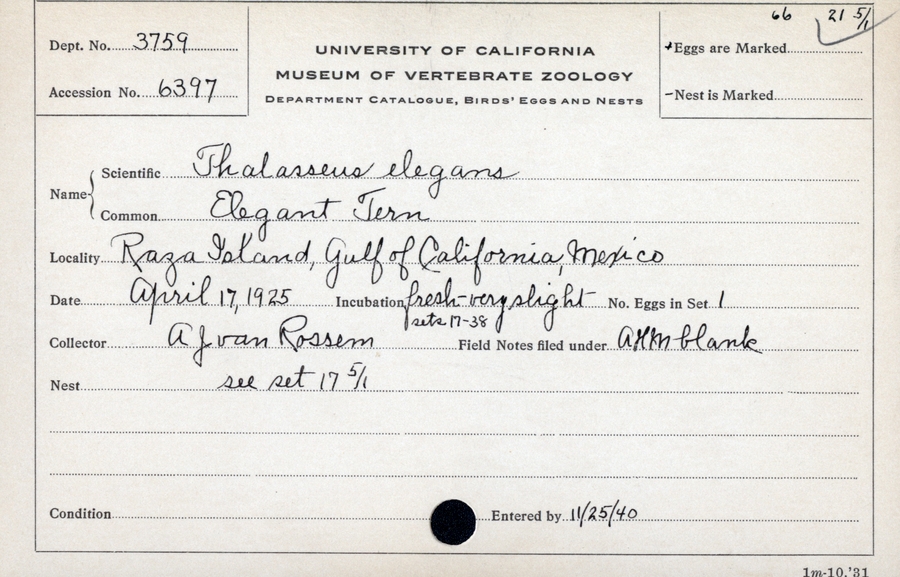 66 21 5/1
Dept. No. 3759
UNIVERSITY OF CALIFORNIA
+Eggs are Marked
MUSEUM OF VERTEBRATE ZOOLOGY
Accession No. 6397
DEPARTMENT CATALOGUE, BIRDS' EGGS AND NESTS
-Nest is Marked
Name { Scientific Thalasseus elegans
Common Elegant Tern
Locality Raza Island, Gulf of California, Mexico
Date April 17, 1925 Incubation fresh-very slight No. Eggs in Set 1
sets 17-38
Collector A J van Rossem Field Notes filed under AHM blank
Nest see set 17 5/1
Condition Entered by 11/25/40
1m-10,'31